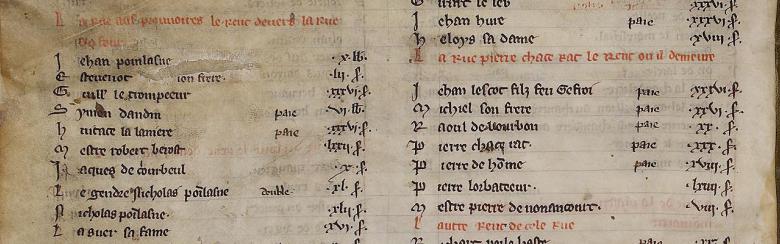 La Rue aus prouvoires le renc devers la Rue
du four.
Jehan poulasne .x. lb.
Estevenot son frere. .lii. s.
Guill' le trompeeur .xxxvi. s.
Symon dandin paie .vi. lb.
huitace la lamiere paie .xxxvi. s.
Mestre robert
Jaques de courbeul .x. s.
Le gendre Nicholas poulasne .xl. s.
Nicholas poulasne. .xlii. s.
la suer sa fame .xvi. s.
xxxvi. s.
Jehan huie paie .xxxvi. s.
heloys sa dame .xviii. s.
La Rue pierre chace rat le Renc ou il demeure
Jehan lescot filz feu Gefroi paie .xxxvi. s.
Michiel son frere paie .xxxvi. s.
Raoul de bourbon paie .xx. s.
Pierre chace rat paie .xxx. s.
Pierre de home paie .xviii. s.
Pierre lorbateeur. .lxxii. s.
Mestre pierre de nonancourt. .viii. s.
Lautre Renc de cele Rue